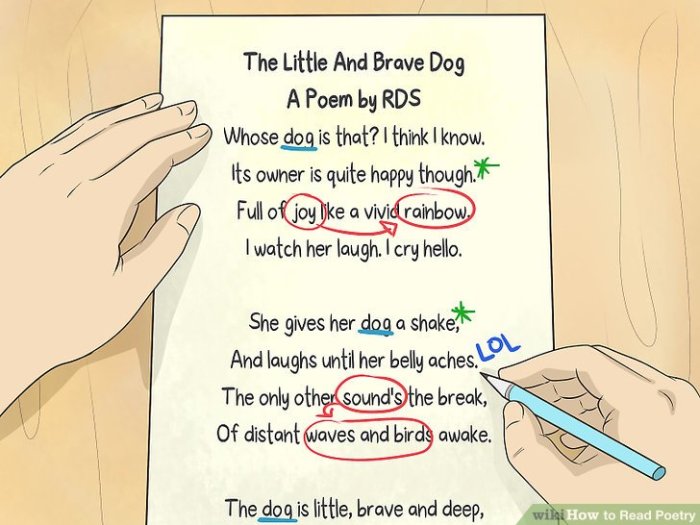 The Little And Brave Dog
A Poem by RDS
Whose dog is that? I think I know.
Its owner is quite happy though.*
Full of joy like a vivid rainbow.
I watch her laugh. I cry hello.
She gives her dog a shake,*
And laughs until her belly aches. LOL
The only other sound's the break,
Of distant waves and birds awake.
The dog is little, brave and deep,
wikiHow to Read Poetry